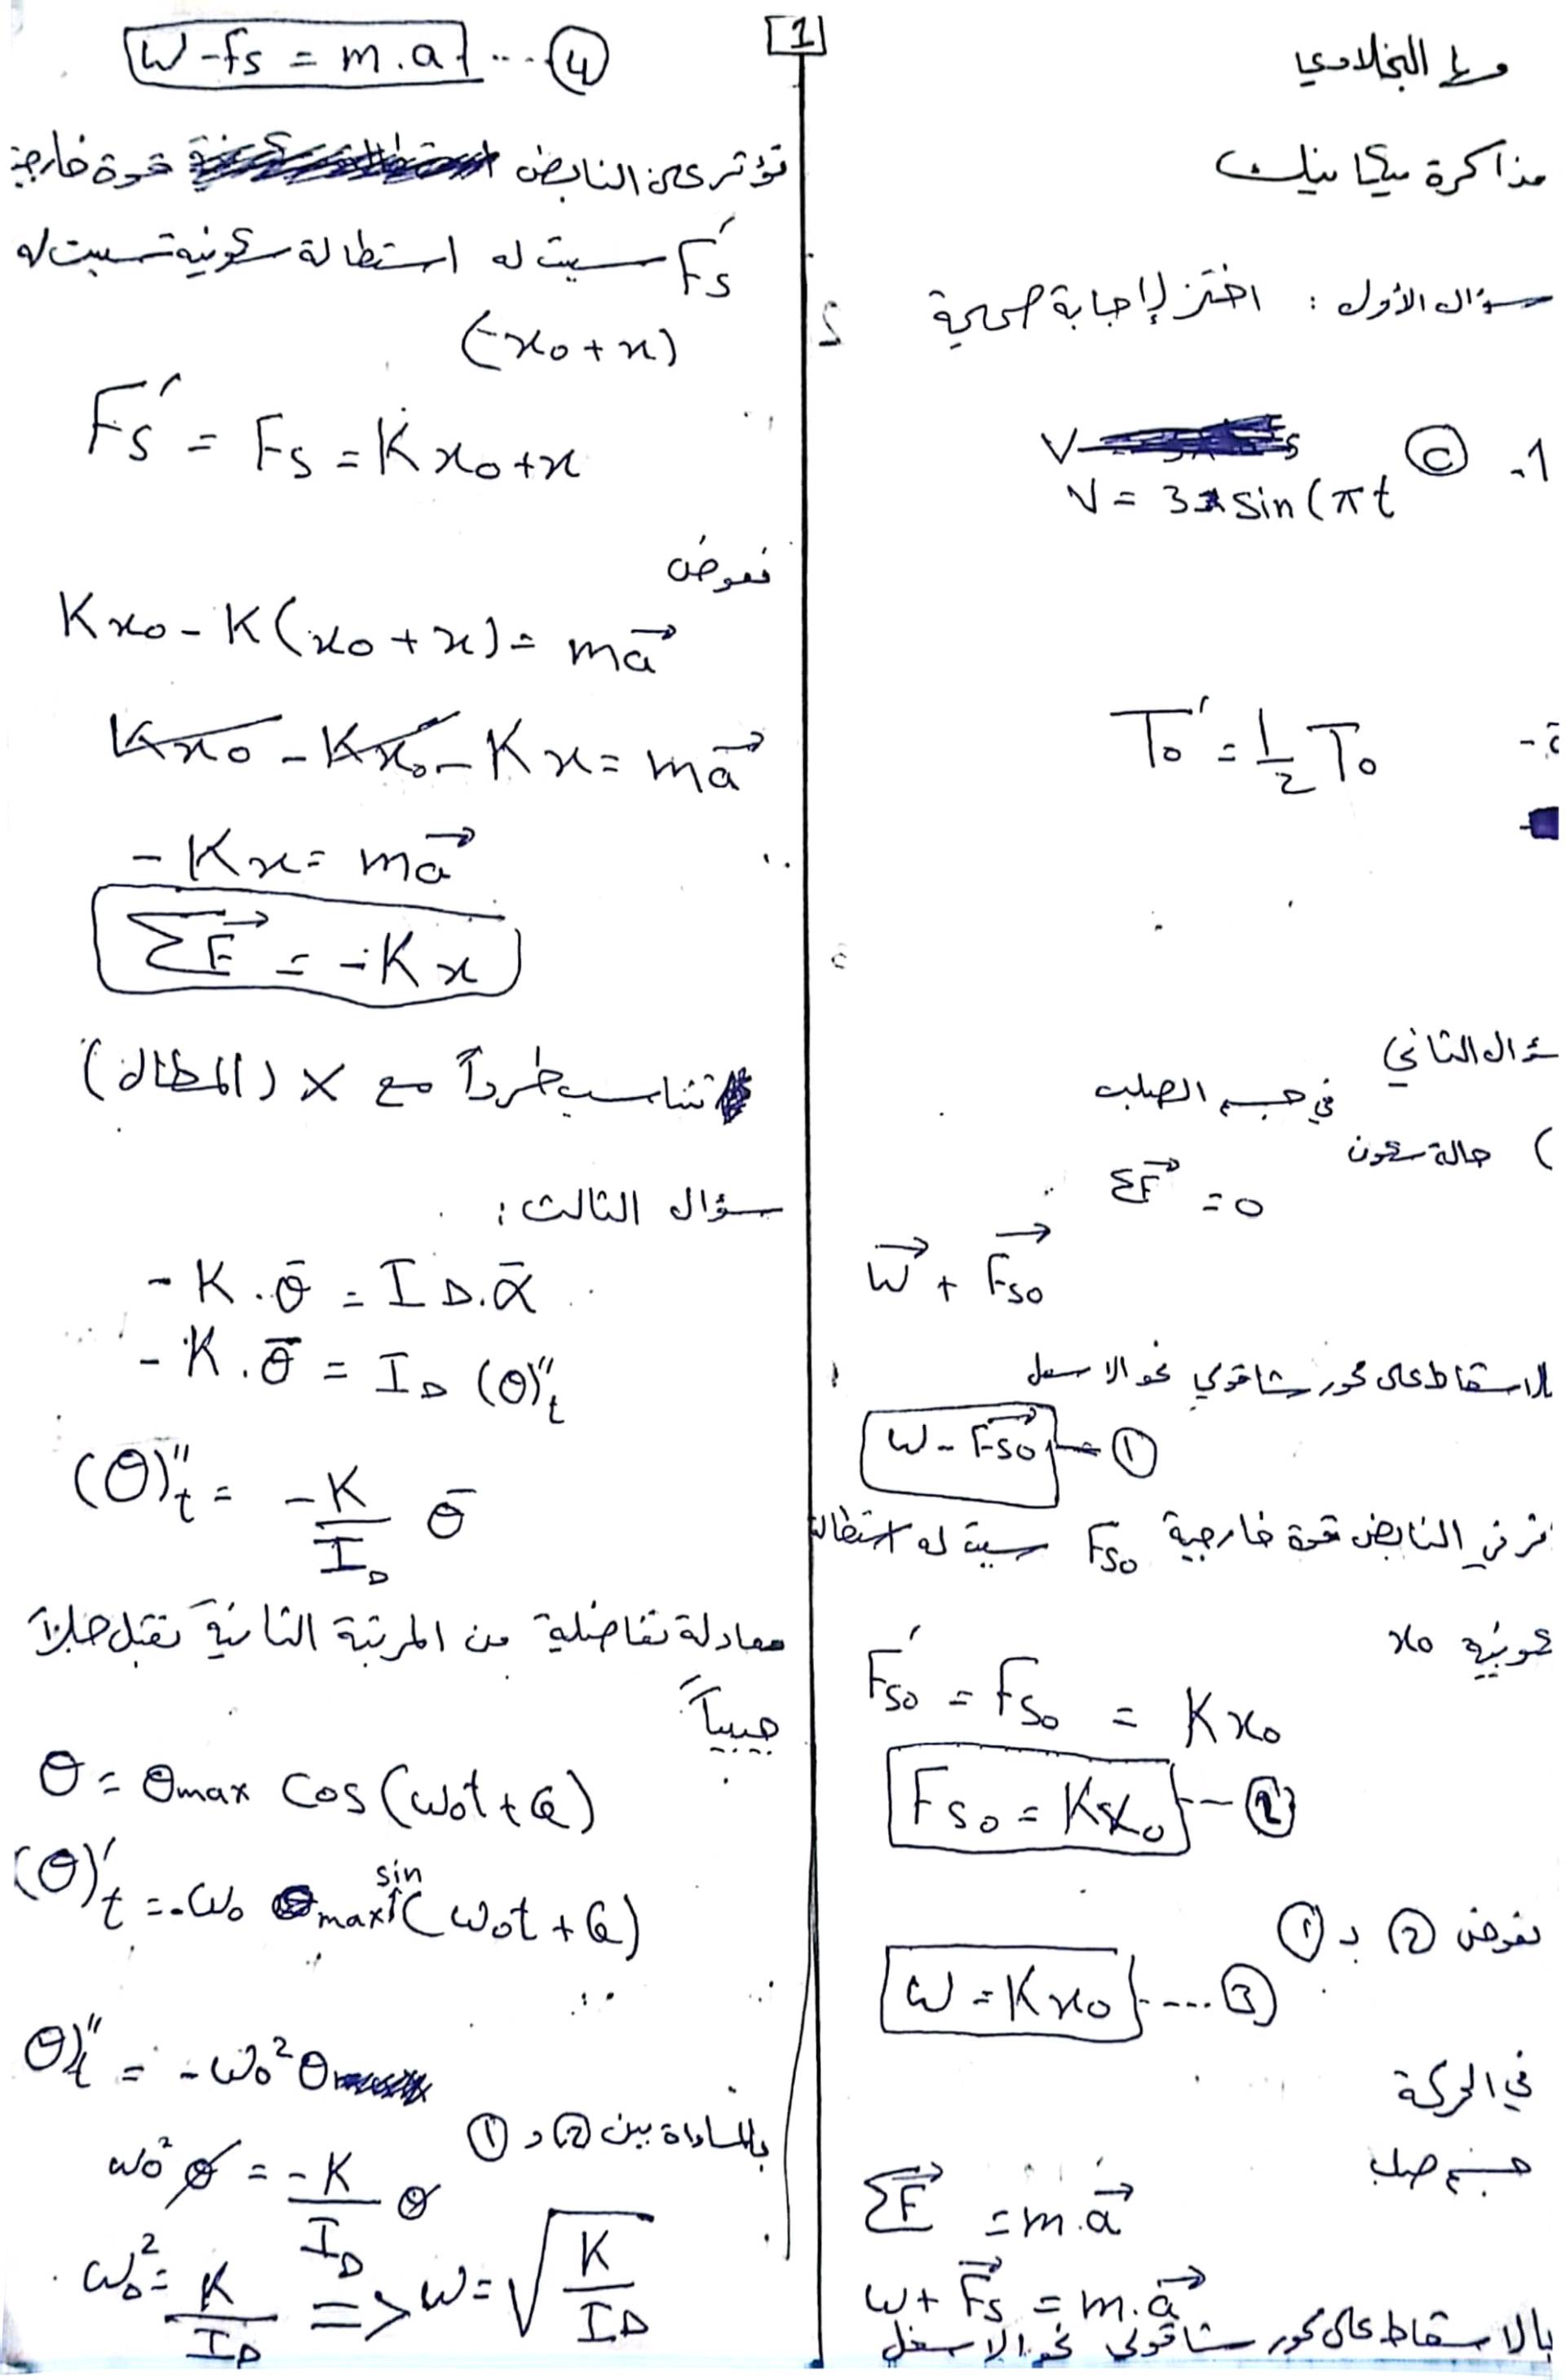 [1]
مذاكرة ميكانيك
سؤال الأول : اختر لإجابة صحيحة
1- ⓒ
V = 3π sin(πt
To' = 1/2 To
ؤال الثاني
في جسم الصلب
حالة سكون )
ΣF⃗ = 0
W⃗ + Fso⃗
الاسقاط على محور شاقولي نحو الاسفل
W - Fso⃗ - ①
النابض قوة خارجية Fso سببت له استطالة
كونية x0
Fso' = Fso = K x0
Fso = Kx0 -- ②
نعوض ② بـ ①
W = K x0 .... ③
في الحركة
جسم صلب
ΣF⃗ = m.a⃗
W + Fs⃗ = m.a⃗
بالاسقاط على محور شاقولي نحو الاسفل
W - fs = m.a ... ④
تؤثر على النابض قوة خارجية
Fs' سببت له استطالة سكونية سببت له
(x0 + x)
Fs' = Fs = K x0 + x
نعوض
K x0 - K(x0 + x) = ma⃗
K x0 - K x0 - K x = ma⃗
- K x = ma⃗
ΣF⃗ = - K x
تتناسب طرداً مع x (المطال)
سؤال الثالث :
- K . θ̄ = I Δ . ᾱ
- K . θ̄ = I Δ (θ)''t
(θ)''t = -K/IΔ θ̄
معادلة تفاضلية من المرتبة الثانية تقبل حلاً
جيبياً
θ = θmax cos(ω0t + φ)
(θ)'t = -ω0 θmax sin(ω0t + φ)
θ)''t = - ω0² θ
بالمساواة بين ② و ①
ω0² θ = -K/IΔ θ
ω0² = K/IΔ => ω = √K/IΔ